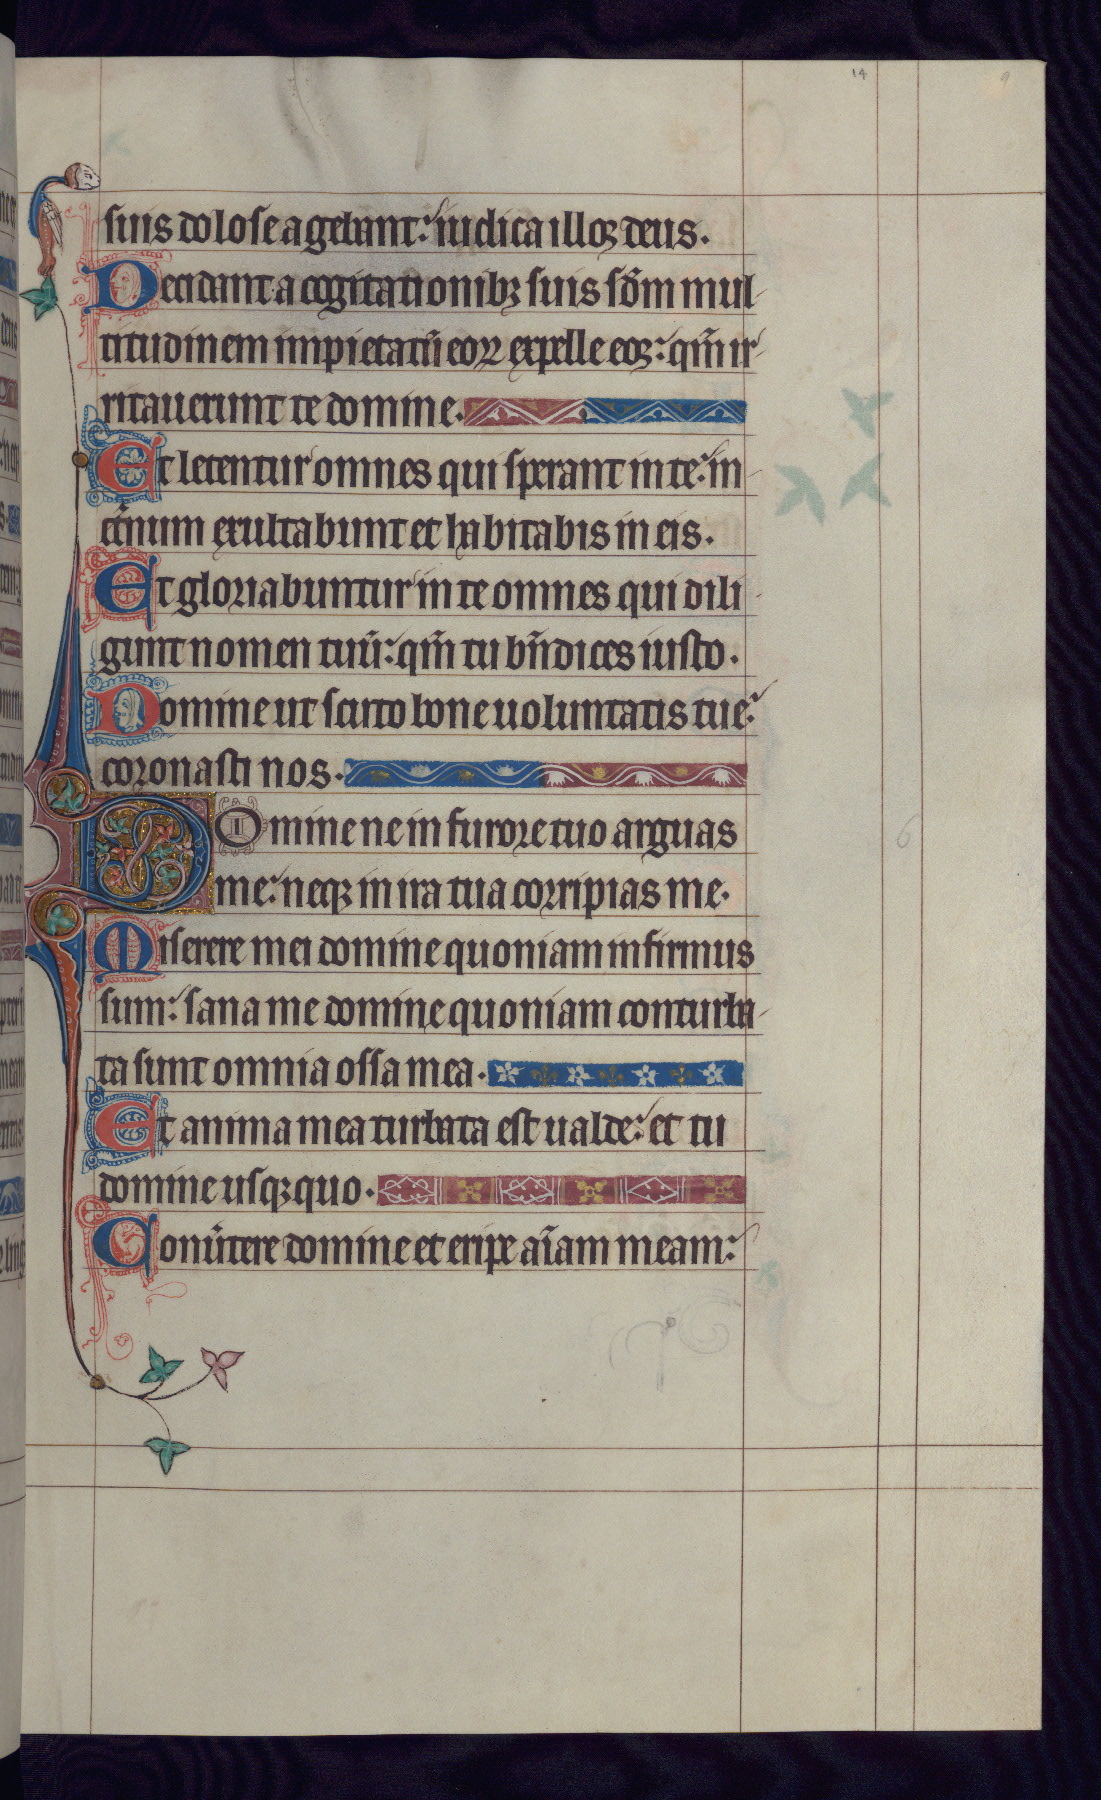 14
9
suis dolose agebant: iudica illoꝝ deus.
Decidant a cogitationibꝫ suis scd̄m mul-
titudinem impietatū eoꝝ expelle eoꝫ: qm̄ ir-
ritauerunt te domine.
Et letentur omnes qui sperant in te: in
et̄num exultabunt et habitabis in eis.
Et gloriabuntur in te omnes qui dili-
gunt nomen tuū: qm̄ tu bn̄dices iusto.
Domine ut scuto bone uoluntatis tue:
coronasti nos.
Domine ne in furore tuo arguas
me: neqꝫ in ira tua corripias me.
Miserere mei domine quoniam infirmus
sum: sana me domine quoniam conturba-
ta sunt omnia ossa mea.
Et anima mea turbata est ualde: et tu
domine usqꝫ quo.
Conu̅tere domine et eripe aīam meam:
6